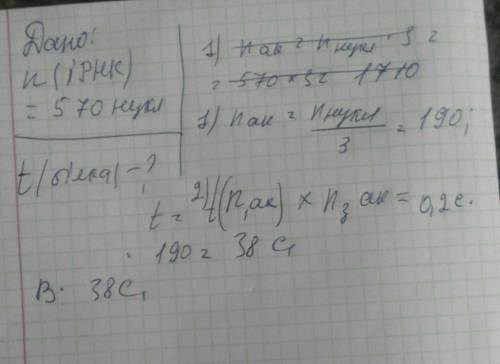 Дано:
n(іРНК)
= 570 нукл
t(білка) - ?
1) n ак = n нукл · 3 =
= 570 × 3 = 1710
1) n ак = n нукл / 3 = 190;
2) t = t(n₁ ак) × n₃ ак = 0,2 с.
· 190 = 38 с,
В: 38 с,